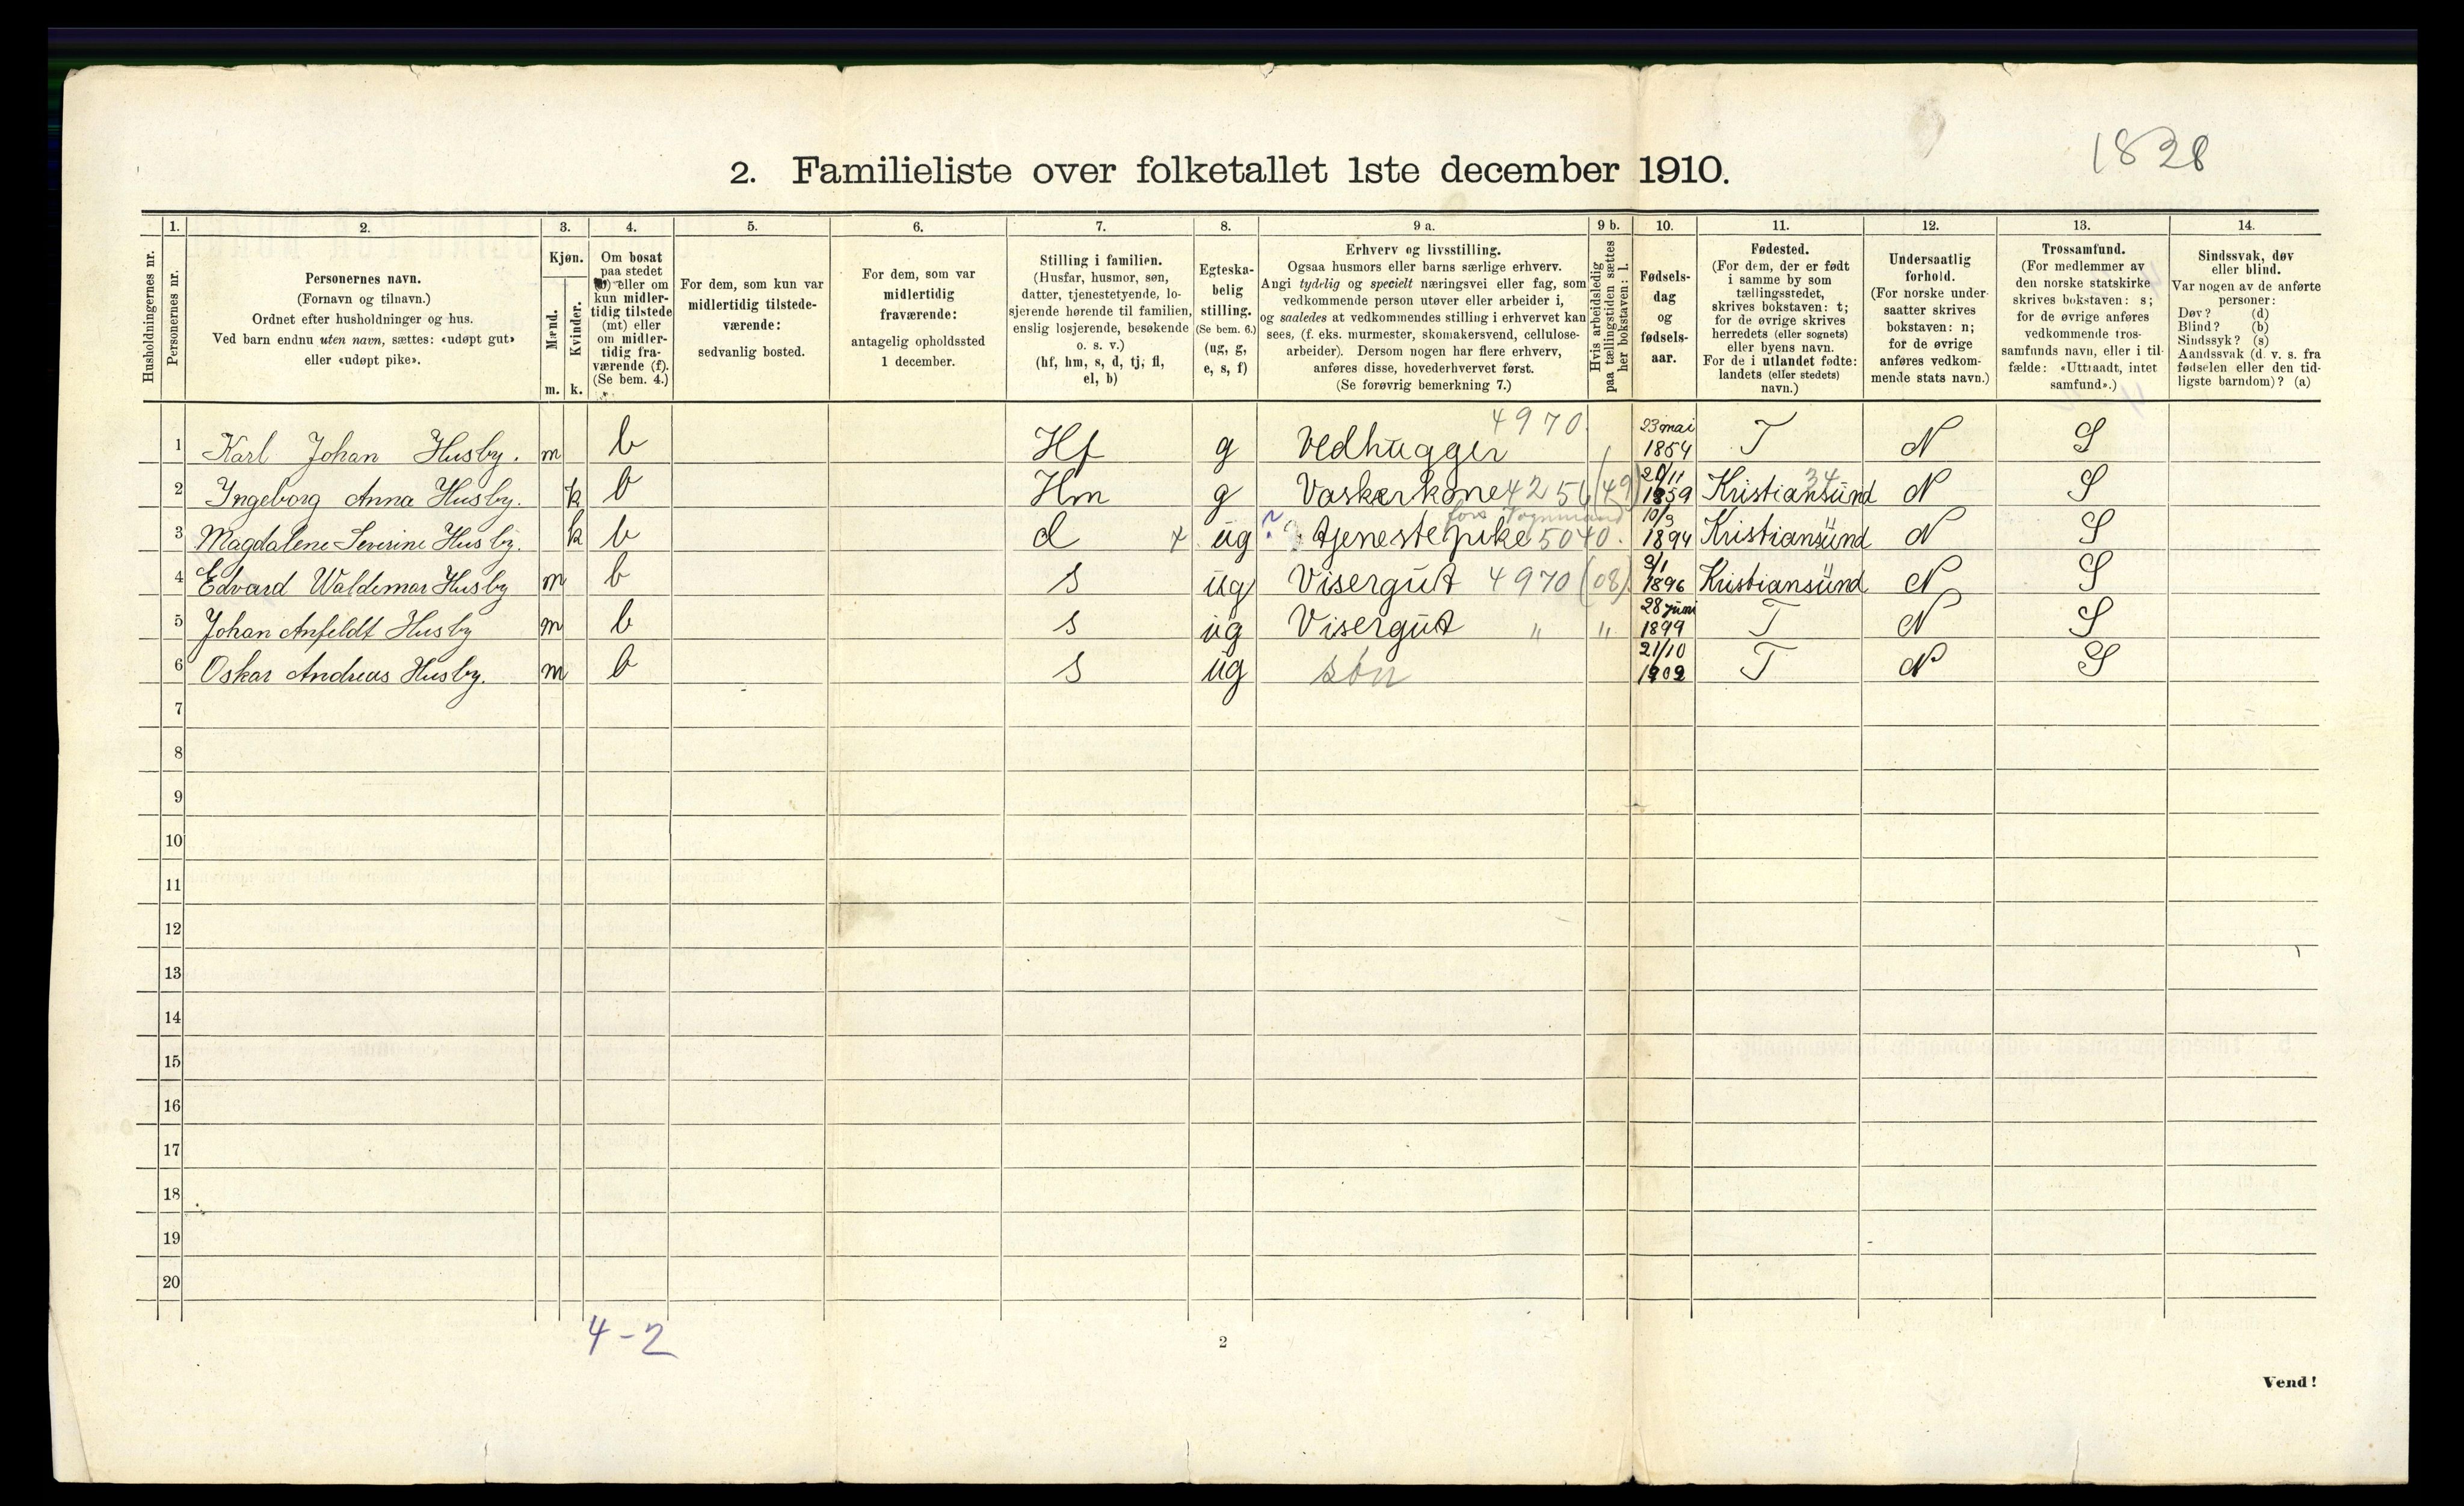 1828
2. Familieliste over folketallet 1ste december 1910.
Husholdningernes nr.
1.
Personernes nr.
2.
Personernes navn.
(Fornavn og tilnavn.)
Ordnet efter husholdninger og hus.
Ved barn endnu uten navn, sættes: «udøpt gut»
eller «udøpt pike».
3.
Kjøn.
Mænd.
Kvinder.
m. k.
4.
Om bosat
paa stedet
(b) eller om
kun midler-
tidig tilstede
(mt) eller
om midler-
tidig fra-
værende (f).
(Se bem. 4.)
5.
For dem, som kun var
midlertidig tilstede-
værende:
sedvanlig bosted.
6.
For dem, som var
midlertidig
fraværende:
antagelig opholdssted
1 december.
7.
Stilling i familien.
(Husfar, husmor, søn,
datter, tjenestetyende, lo-
sjerende hørende til familien,
enslig losjerende, besøkende
o. s. v.)
(hf, hm, s, d, tj, fl,
el, b)
8.
Egteska-
belig
stilling.
(Se bem. 6.)
(ug, g,
e, s, f)
9 a.
Erhverv og livsstilling.
Ogsaa husmors eller barns særlige erhverv.
Angi tydelig og specielt næringsvei eller fag, som
vedkommende person utøver eller arbeider i,
og saaledes at vedkommendes stilling i erhvervet kan
sees, (f. eks. murmester, skomakersvend, cellulose-
arbeider). Dersom nogen har flere erhverv,
anføres disse, hovederhvervet først.
(Se forøvrig bemerkning 7.)
9 b.
Hvis arbeidsledig
paa tællingstiden sættes
her bokstaven: l.
10.
Fødsels-
dag
og
fødsels-
aar.
11.
Fødested.
(For dem, der er født
i samme by som
tællingsstedet,
skrives bokstaven: t;
for de øvrige skrives
herredets (eller sognets)
eller byens navn.
For de i utlandet fødte:
landets (eller stedets)
navn.)
12.
Undersaatlig
forhold.
(For norske under-
saatter skrives
bokstaven: n;
for de øvrige
anføres vedkom-
mende stats navn.)
13.
Trossamfund.
(For medlemmer av
den norske statskirke
skrives bokstaven: s;
for de øvrige anføres
vedkommende tros-
samfunds navn, eller i til-
fælde: «Uttraadt, intet
samfund».)
14.
Sindssvak, døv
eller blind.
Var nogen av de anførte
personer:
Døv? (d)
Blind? (b)
Sindssyk? (s)
Aandssvak (d. v. s. fra
fødselen eller den tid-
ligste barndom)? (a)
1 Karl Johan Husby. m b Hf g Vedhugger 4970 23 mai 1854 T N S
2 Ingeborg Anna Husby. k b Hm g Vaskerkone (49) 20/11 1859 Kristiansund 34 N S
3 Magdalene Severine Husby. k b d x ug ? tjenestepike 5040. 10/3 1894 Kristiansund N S
4 Edvard Waldemar Husby m b s ug Visergut 4970 (08) 3/1 1896 Kristiansund N S
5 Johan Anfeldt Husby m b s ug Visergut " " 28 juni 1899 T N S
6 Oskar Andreas Husby. m b s ug søn 21/10 1902 T N S
7
8
9
10
11
12
13
14
15
16
17
18
19
20
4-2
2
Vend!